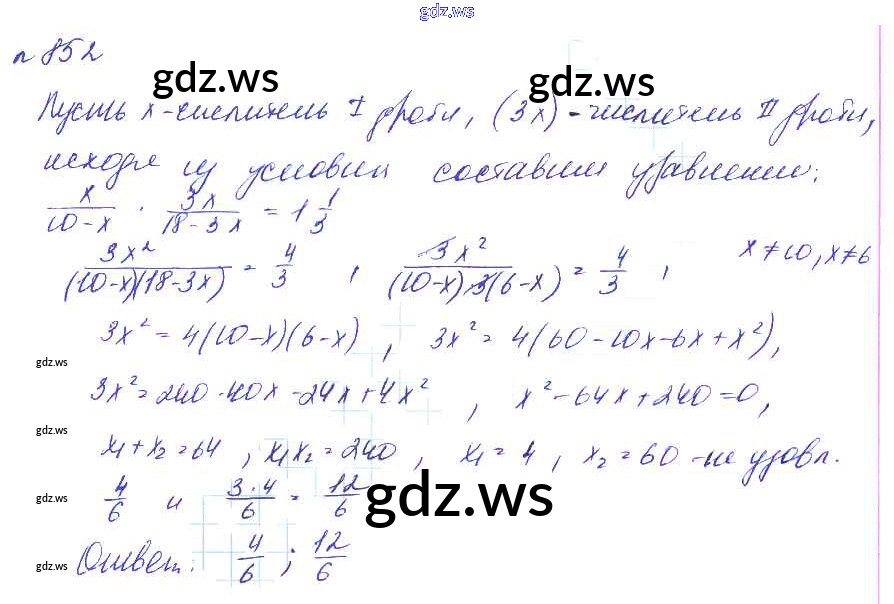 gdz.ws
n 852
gdz.ws gdz.ws
Пусть x-числитель I дроби, (3x) - числитель II дроби,
исходя из условия составим уравнение:
x/(10-x) · 3x/(18-3x) = 1 1/3
3x²/((10-x)(18-3x)) = 4/3 , 3x²/((10-x)·3(6-x)) = 4/3 , x≠10, x≠6
3x² = 4(10-x)(6-x) , 3x² = 4(60-10x-6x+x²),
gdz.ws
3x² = 240-40x-24x+4x² , x²-64x+240=0,
gdz.ws
x₁+x₂=64 , x₁x₂=240 , x₁=4 , x₂=60 -не удовл.
gdz.ws
4/6 и 3·4/6 = 12/6
gdz.ws
Ответ: 4/6 ; 12/6
gdz.ws